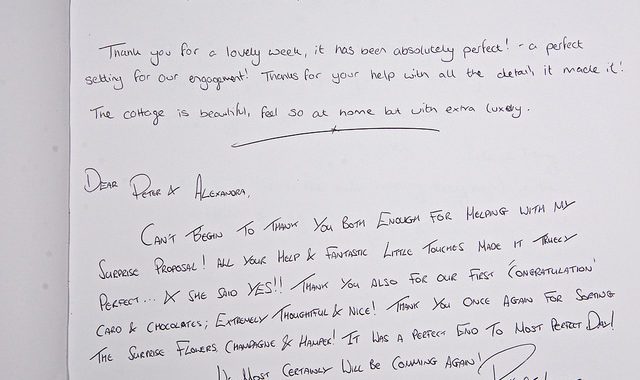 Thank you for a lovely week, it has been absolutely perfect! - a perfect
setting for our engagement! Thanks for your help with all the details, it made it!
The cottage is beautiful, feel so at home but with extra luxury.
DEAR PETER & ALEXANDRA,
CAN'T BEGIN TO THANK YOU BOTH ENOUGH FOR HELPING WITH MY
SURPRISE PROPOSAL! ALL YOUR HELP & FANTASTIC LITTLE TOUCHES MADE IT TRUELY
PERFECT... & SHE SAID YES!! THANK YOU ALSO FOR OUR FIRST 'CONGRATULATION'
CARD & CHOCOLATES; EXTREMELY THOUGHTFUL & NICE! THANK YOU ONCE AGAIN FOR SORTING
THE SURPRISE FLOWERS, CHAMPAGNE & HAMPER! IT WAS A PERFECT END TO MOST PERFECT DAY!
MOST CERTAINLY WILL BE COMMING AGAIN!